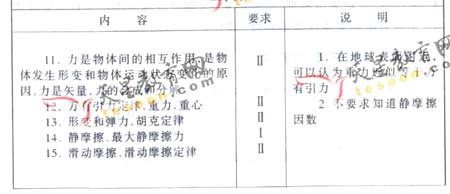 内 容 要求 说 明
11. 力是物体间的相互作用,是物 Ⅱ 1. 在地球表面附近,
体发生形变和物体运动状态变化的原 可以认为重力近似等于万
因.力是矢量.力的合成和分解 有引力
12. 万有引力定律.重力.重心 Ⅱ 2. 不要求知道静摩擦
13. 形变和弹力.胡克定律 Ⅱ 因数
14. 静摩擦.最大静摩擦力 Ⅰ
15. 滑动摩擦.滑动摩擦定律 Ⅱ